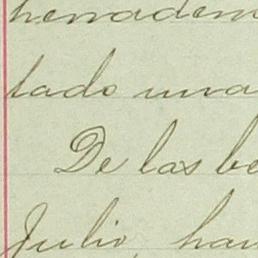 tado una
De las be
Julio, han